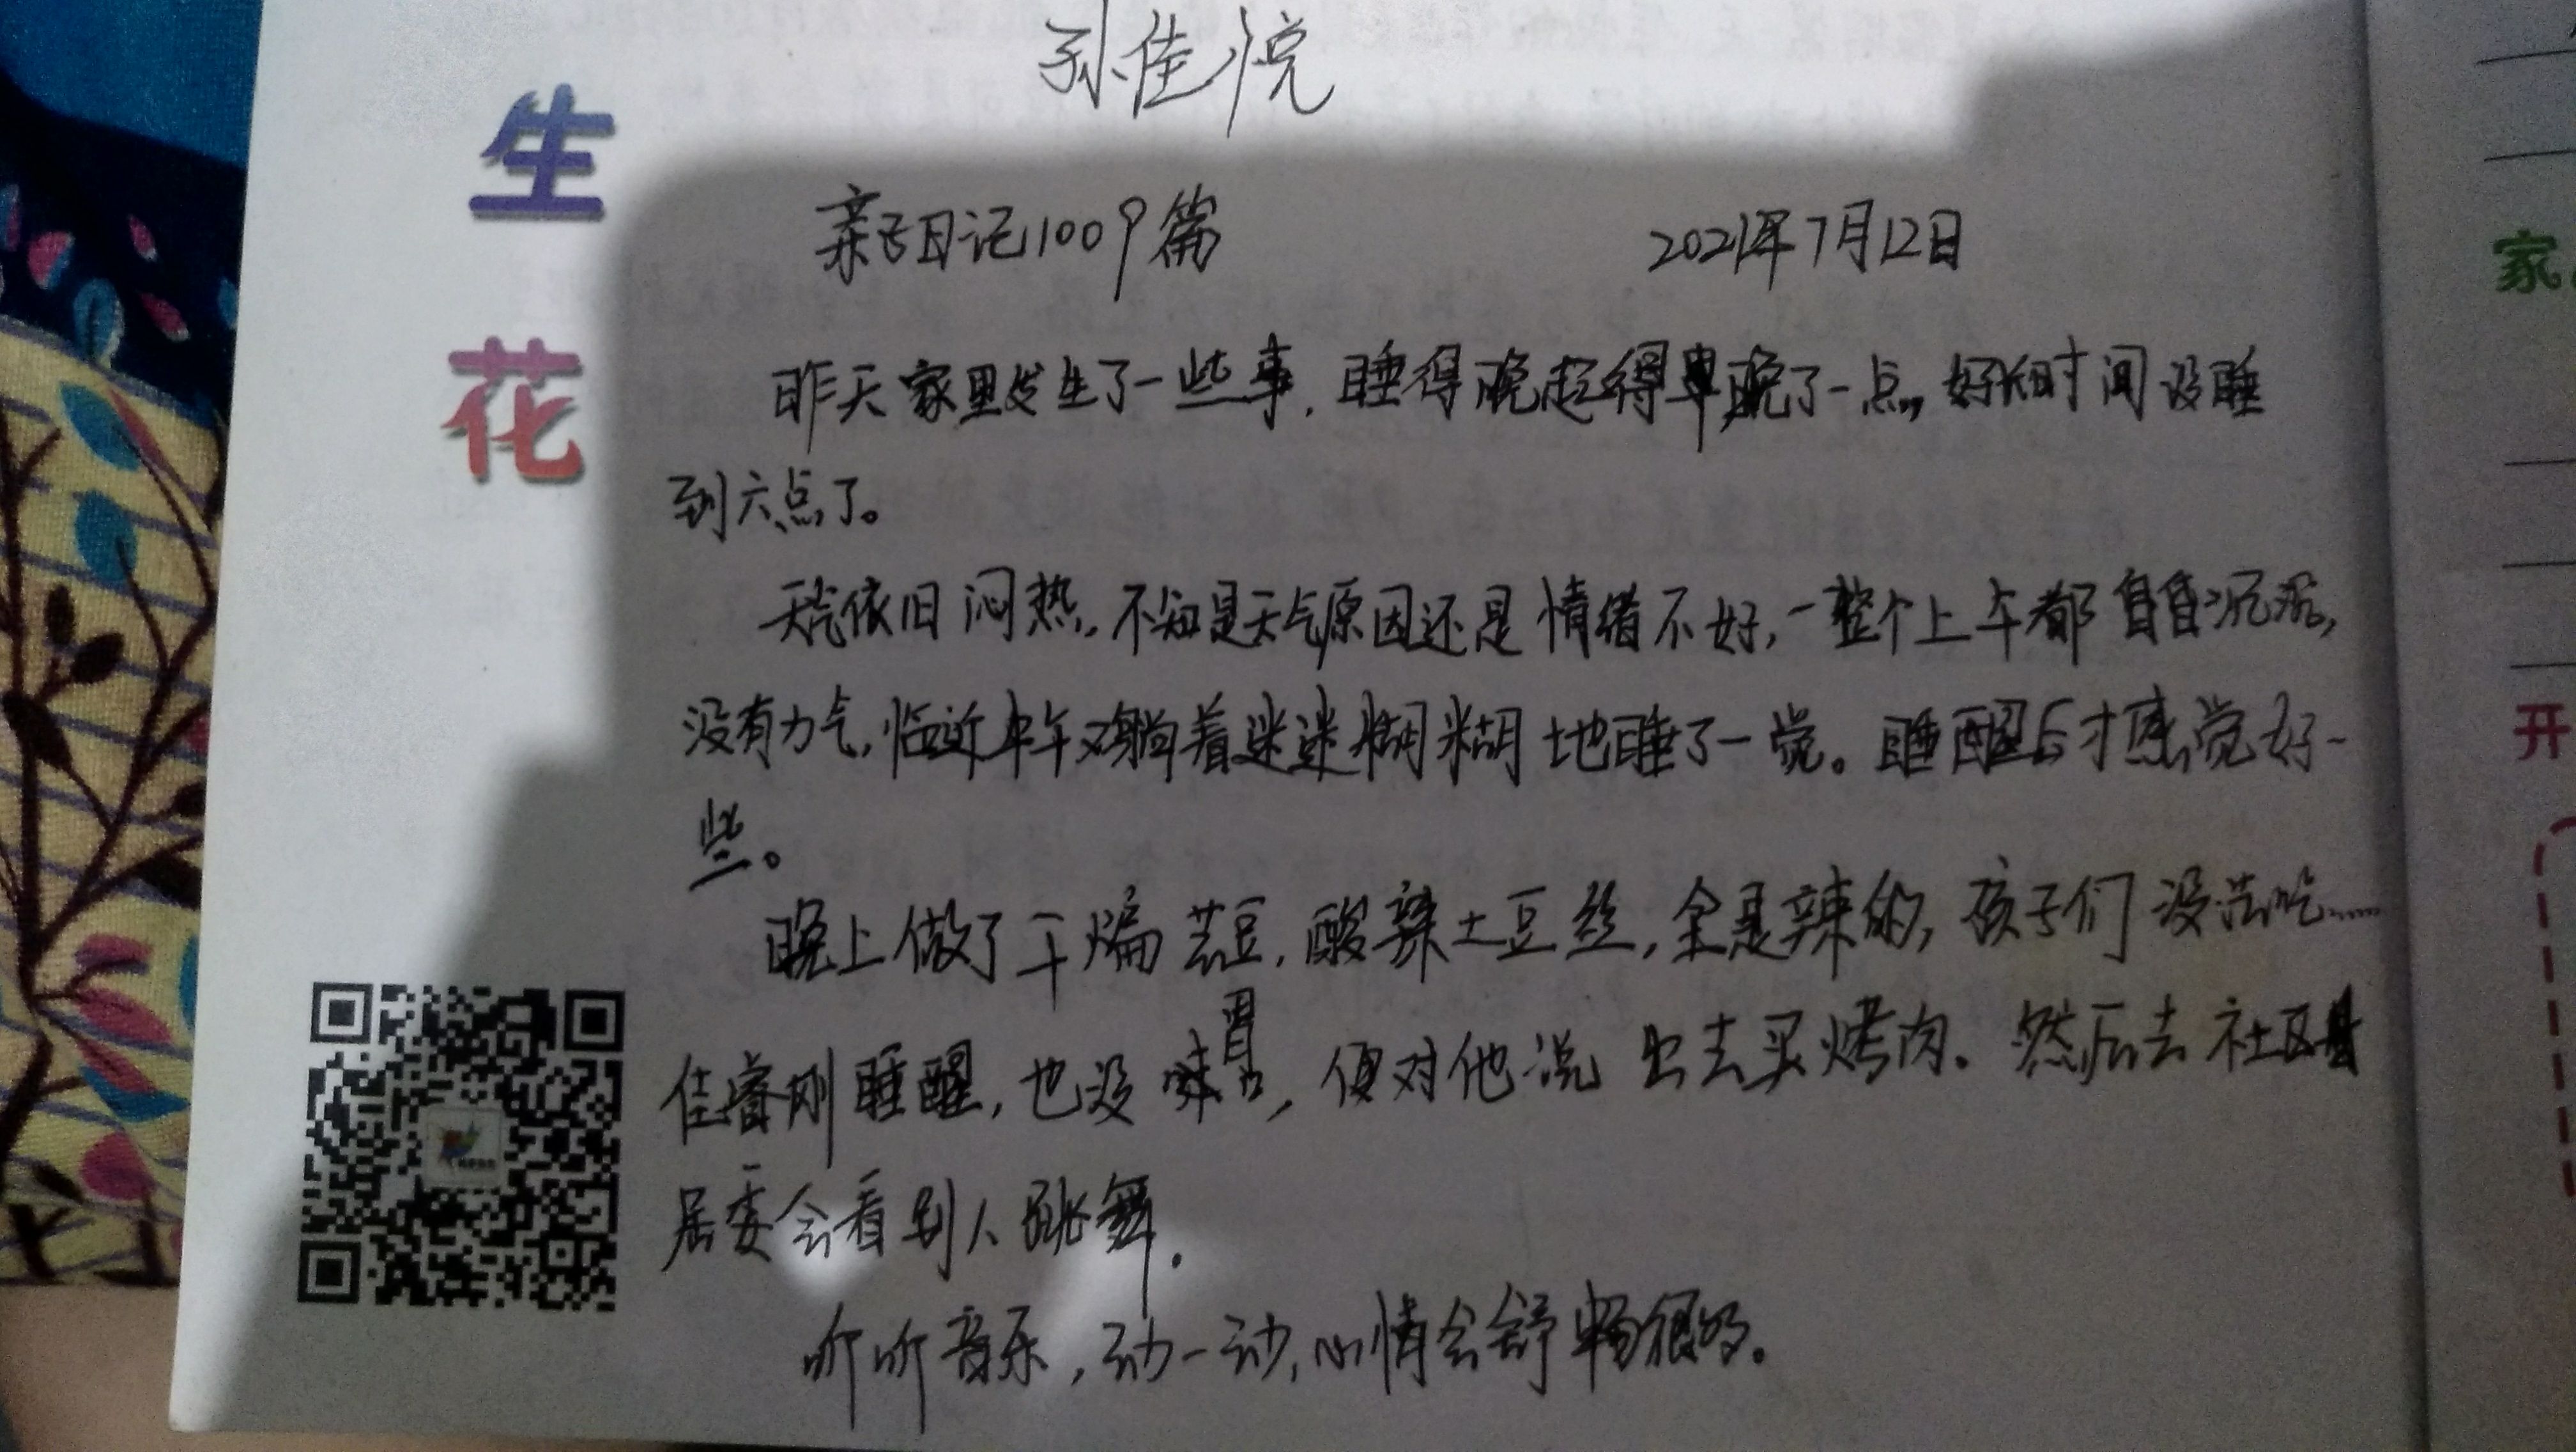 孙佳悦
生
花
亲子日记1009篇 2021年7月12日
昨天家里发生了一些事,睡得晚起得早晚了一点,,好长时间没睡
到六点了。
天气依旧闷热,不知是天气原因还是情绪不好,一整个上午都昏昏沉沉,
没有力气,临近中午躺着迷迷糊糊地睡了一觉。睡醒后才感觉好一
些。
晚上做了干煸芸豆,酸辣土豆丝,全是辣的,孩子们没法吃……
佳睿刚睡醒,也没胃口,便对他说出去买烤肉。然后去社区
居委会看别人跳舞.
听听音乐,动一动,心情会舒畅很多。
家
开